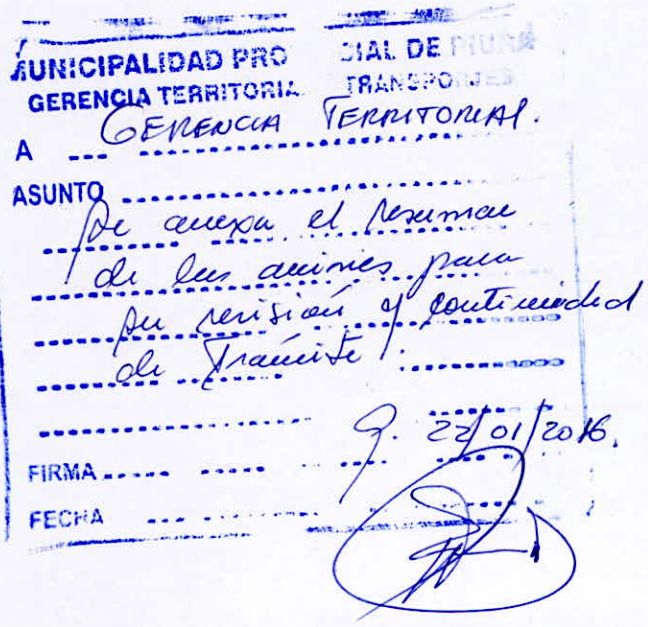 MUNICIPALIDAD PRO CIAL DE PIURA
GERENCIA TERRITORIA TRANSPORTES
A GERENCIA TERRITORIAL.
ASUNTO
Se anexa el resumen
de las para
su revisión y continuidad
de Trámite.
22/01/2016.
FIRMA
FECHA